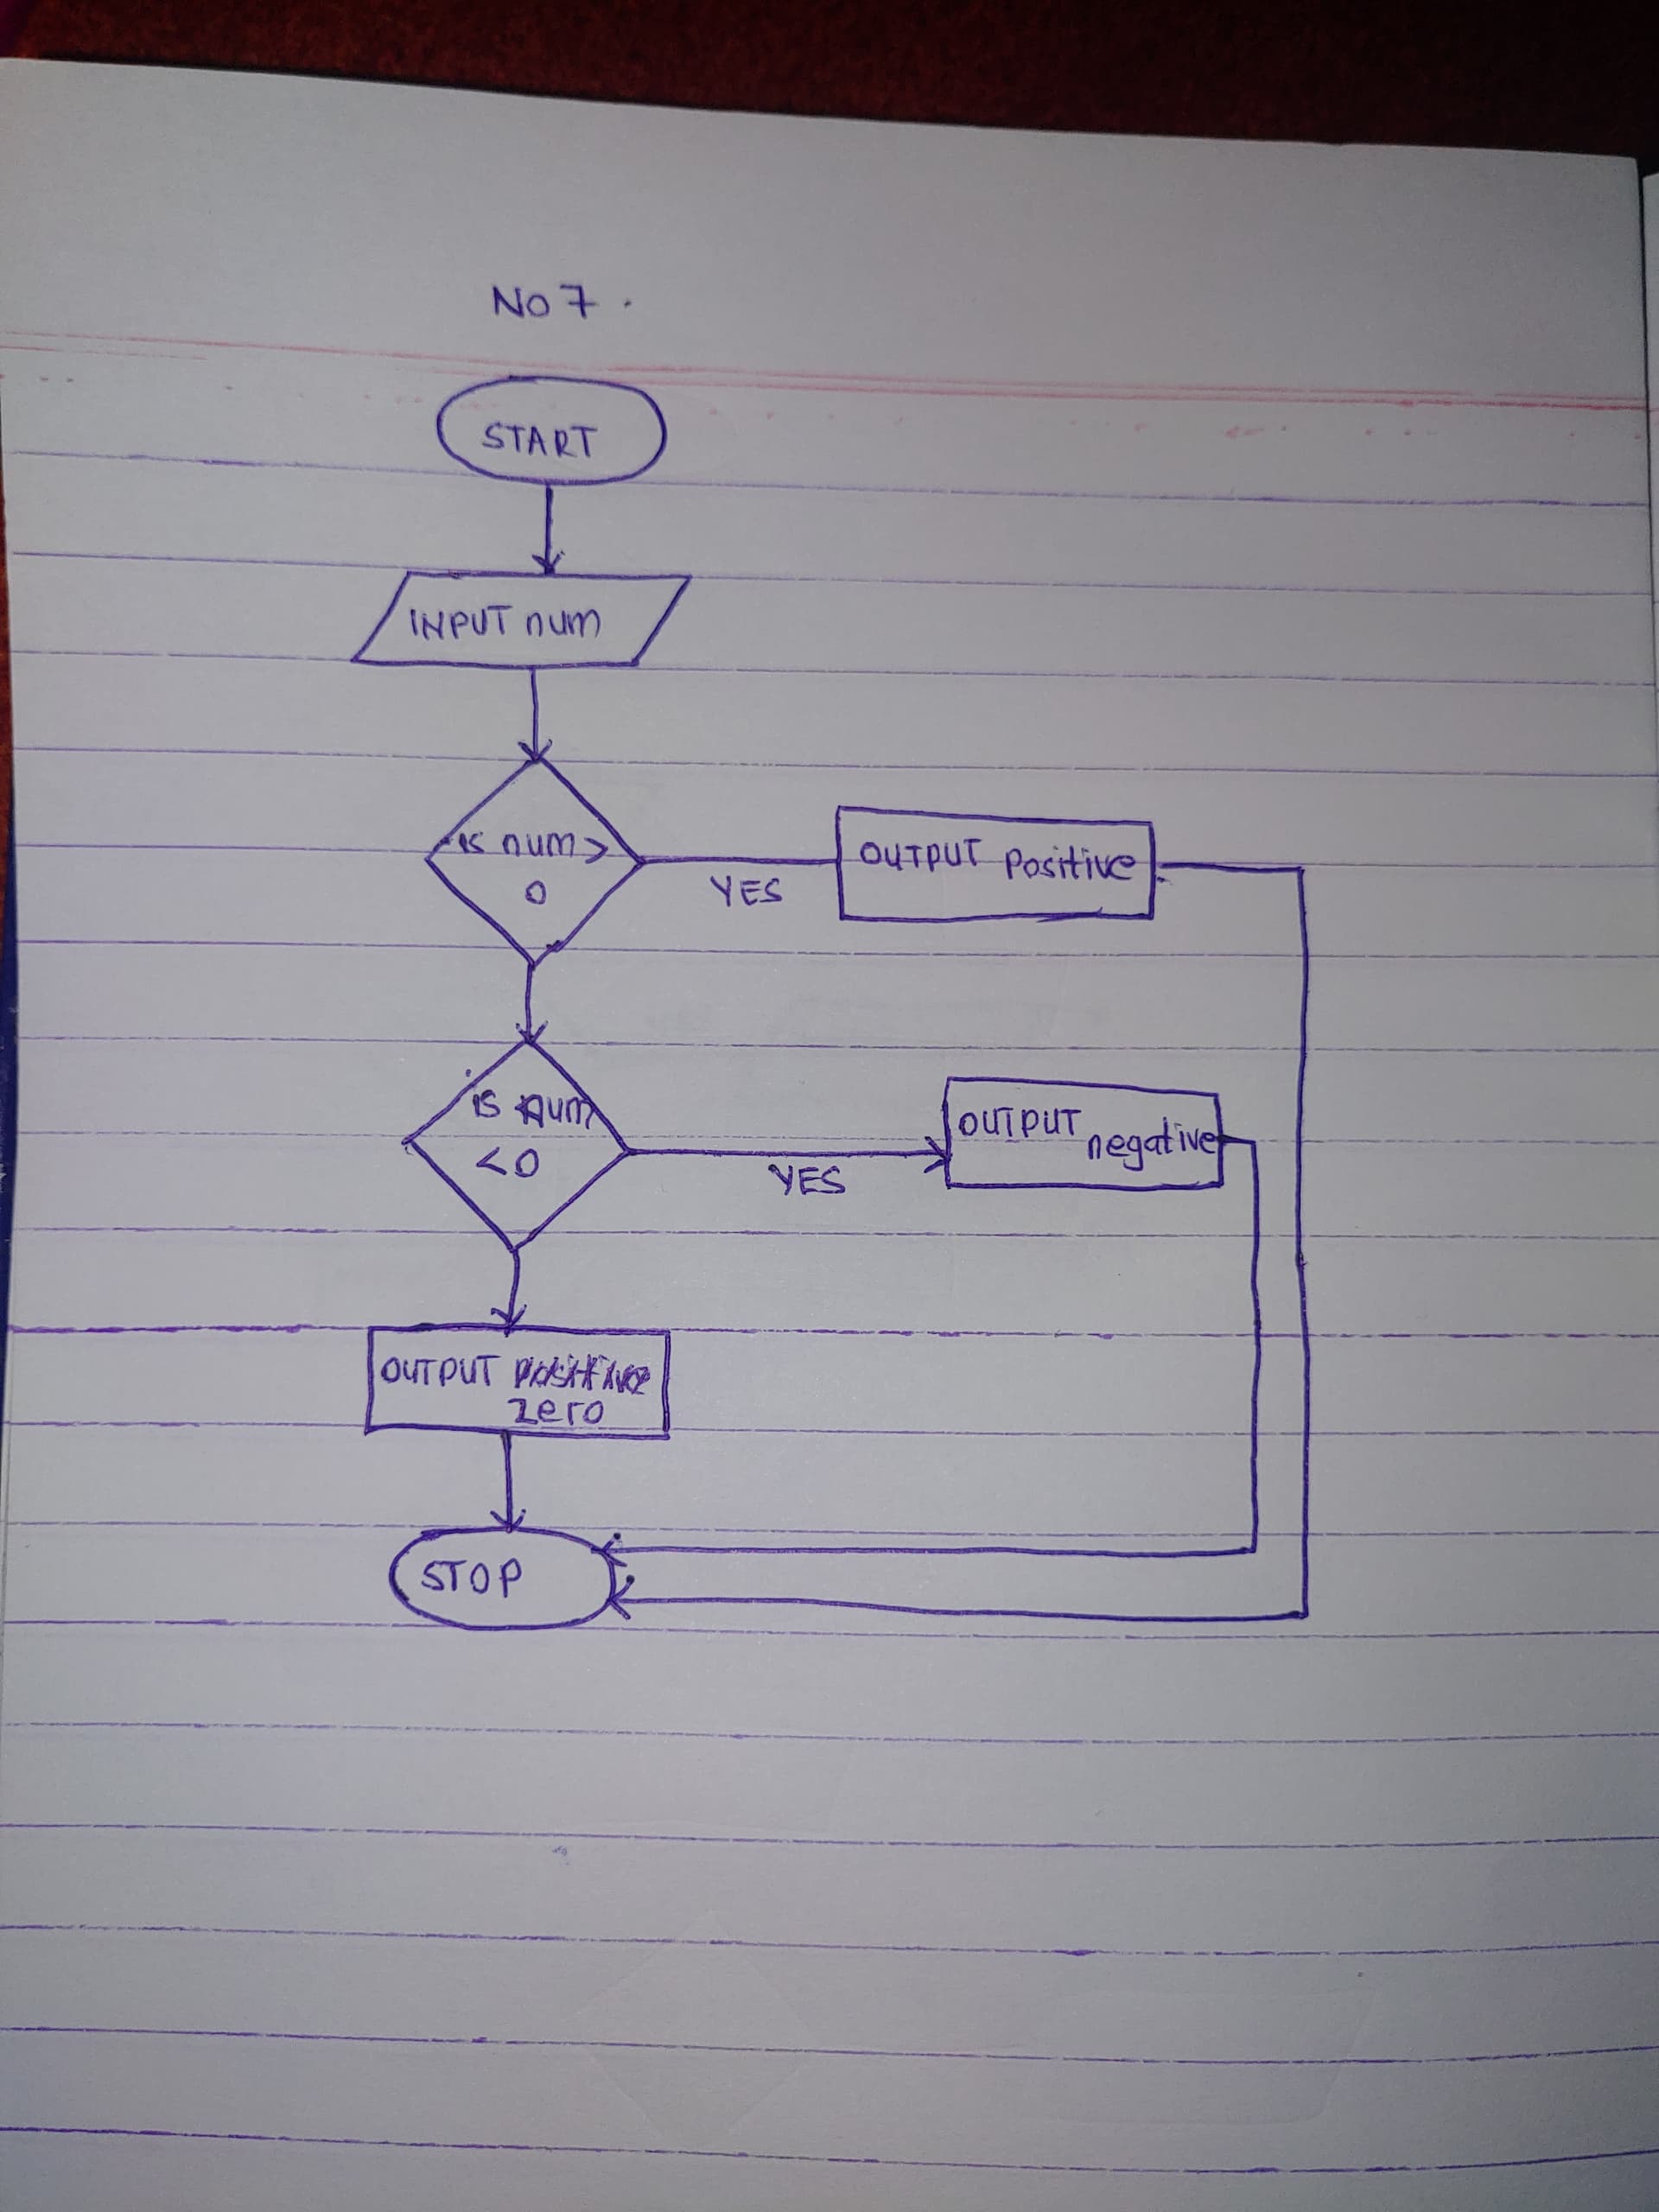 No 7.
START
INPUT num
is num >
0
YES
OUTPUT Positive
is num
<0
YES
OUTPUT negative
OUTPUT positive
zero
STOP